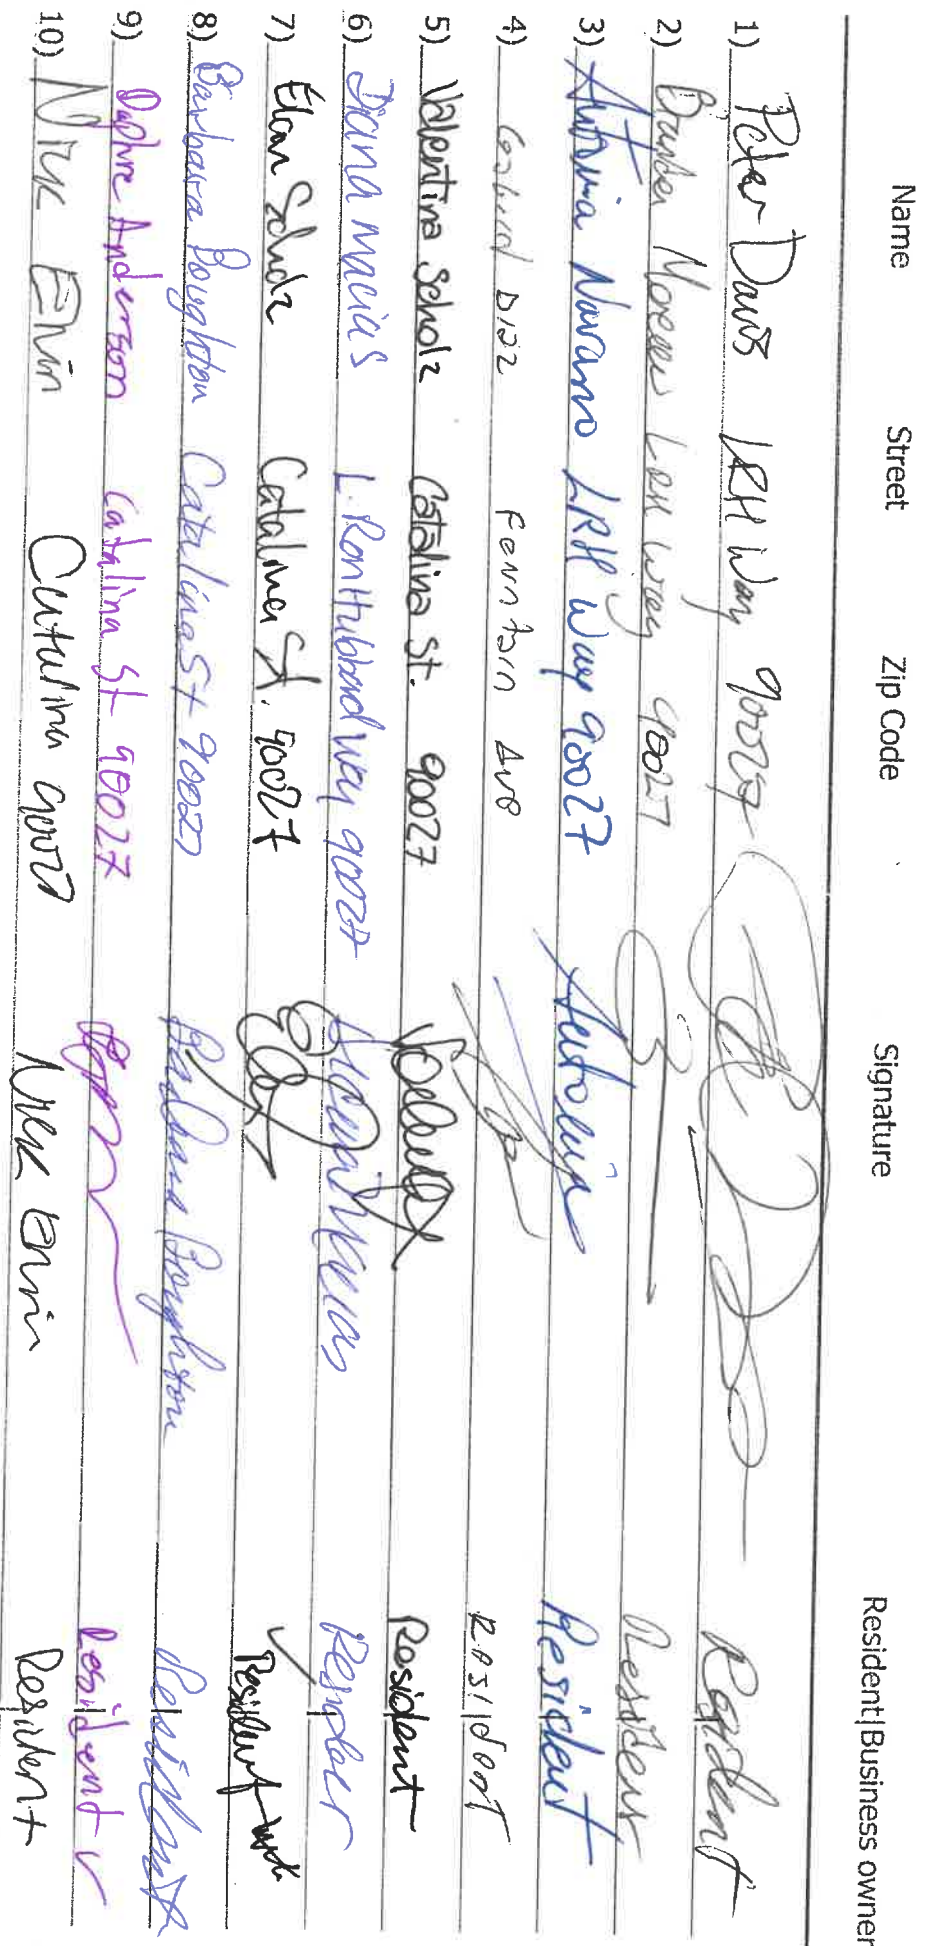 Name Street Zip Code Signature Resident|Business owner
1) Peter Davis LRH Way 90027 Resident
2) LRH Way 90027
3) Antonia Navarro LRH Way 90027 Antonia Resident
4) Gabriel Diaz Fountain Ave Resident
5) Valentina Scholz Catalina St. 90027 Resident
6) Diana Macias L. Ron Hubbard Way 90027
7) Catalina St. 90027 Resident
8) Barbara Boughton Catalina St 90027 Barbara Boughton Resident
9) Daphne Anderson Catalina St 90027 Resident
10) Catalina Resident